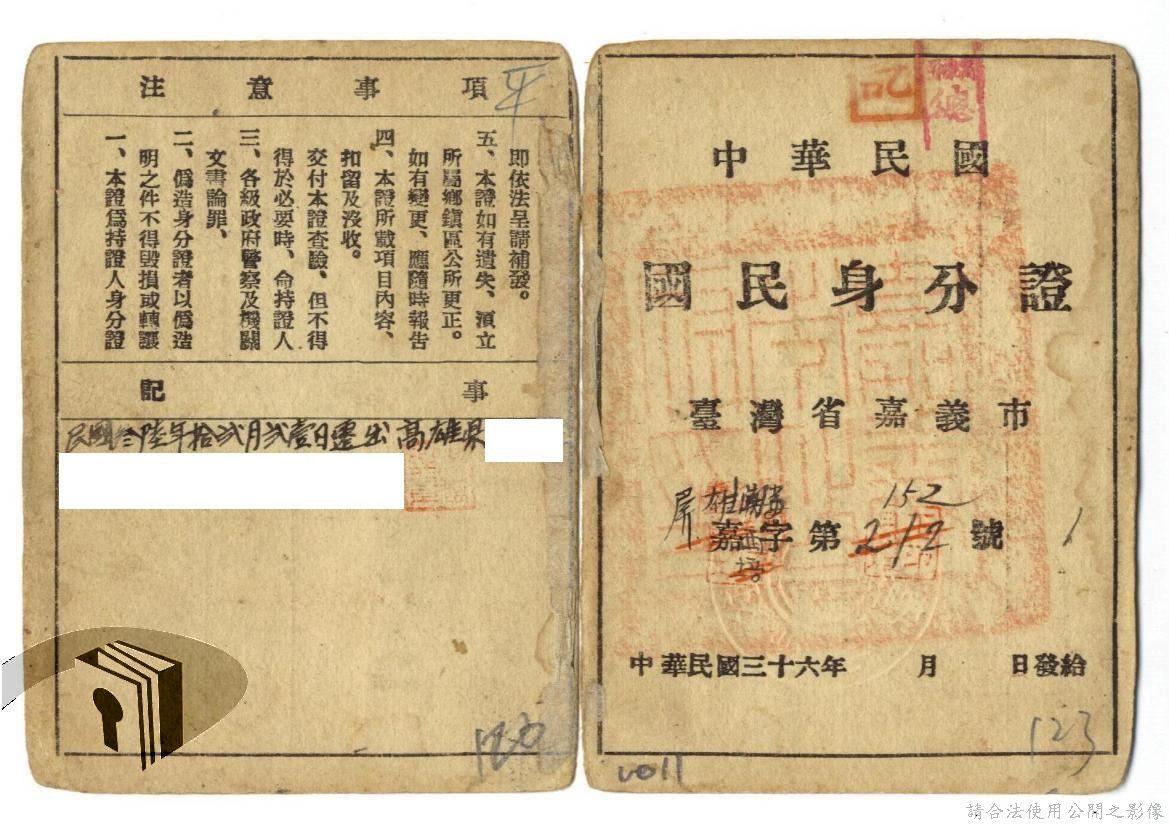 中華民國
國民身分證
臺灣省嘉義市
152
嘉字第212號
中華民國三十六年　月　日發給
123
VO11
注意事項
一、本證爲持證人身分證
明之件不得毀損或轉讓
二、僞造身分證者以僞造
文書論罪、
三、各級政府警察及機關
得於必要時、命持證人
交付本證查驗、但不得
扣留及沒收。
四、本證所載項目內容、
如有變更、應隨時報告
所屬鄉鎮區公所更正。
五、本證如有遺失、須立
即依法呈請補發。
記事
民國叁陸年拾弍月弍壹日遷出高雄県
請合法使用公開之影像